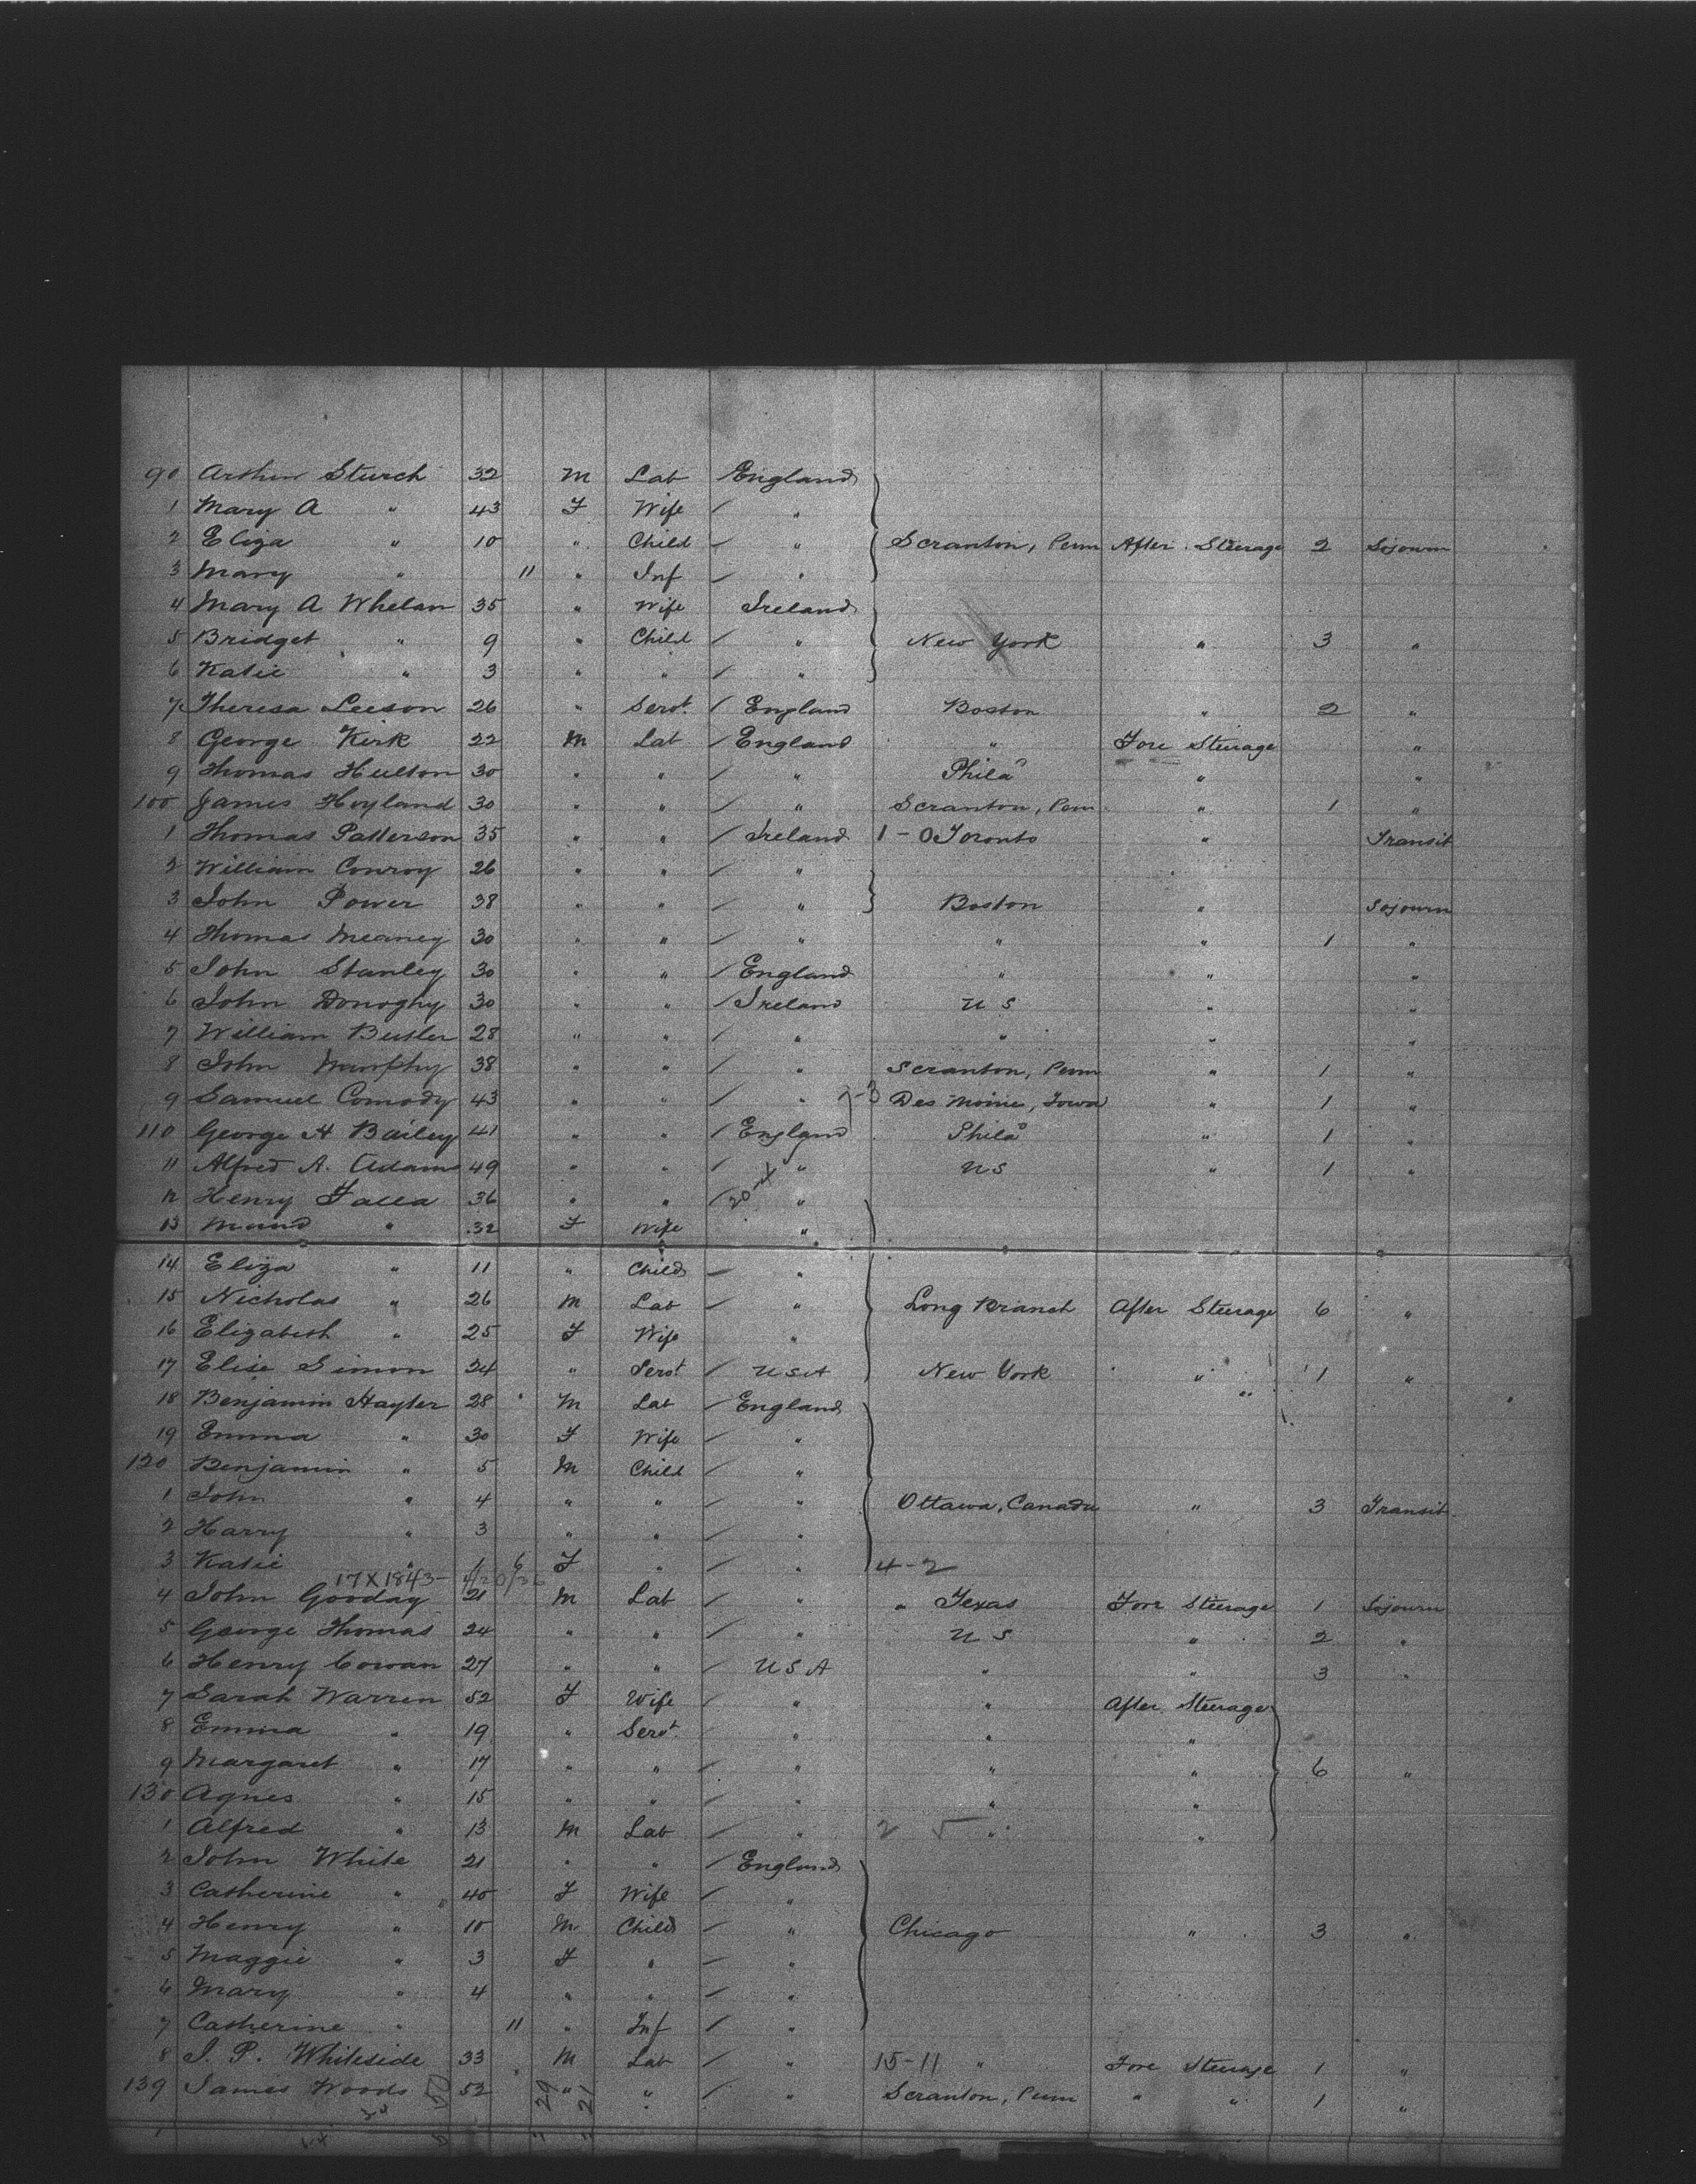 90 Arthur Sturch 32 M Lab England
1 Mary A " 43 F Wife / "
2 Eliza " 10 " Child / " Scranton, Penn After Steerage 2 Sojourn
3 Mary " 11 " Inf / "
4 Mary A Whelan 35 " Wife Ireland
5 Bridget " 9 " Child / " New York " 3 "
6 Katie " 3 " " / "
7 Theresa Leeson 26 " Servt / England Boston " 2 "
8 George Kirk 22 M Lab / England " Fore Steerage "
9 Thomas Hulton 30 " " / " Phila " "
100 James Hoyland 30 " " / " Scranton, Penn " 1 "
1 Thomas Patterson 35 " " / Ireland 1-0 Toronto " Transit
2 William Conroy 26 " " / "
3 John Power 38 " " / " Boston " Sojourn
4 Thomas Meaney 30 " " / " " " 1 "
5 John Stanley 30 " " / England " " "
6 John Donoghy 30 " " / Ireland U S " "
7 William Butler 28 " " / " " " "
8 John Murphy 38 " " / " Scranton, Penn " 1 "
9 Samuel Comody 43 " " / " 7-3 Des Moine, Iowa " 1 "
110 George H Bailey 41 " " / England Phila " 1 "
11 Alfred A. Adams 49 " " / " U S " 1 "
12 Henry Falla 36 " " / 20-4 "
13 Maud " 32 F Wife "
14 Eliza " 11 " Child / "
15 Nicholas " 26 M Lab / " Long Branch After Steerage 6 "
16 Elizabeth " 25 F Wife "
17 Elise Simon 24 " Servt / USA New York " " 1 "
18 Benjamin Hayter 28 M Lab / England
19 Emma " 30 F Wife / "
120 Benjamin " 5 M Child / "
1 John " 4 " " / " Ottawa, Canada " 3 Transit
2 Harry " 3 " " / "
3 Katie " 6 F " / " 4-2
17X1843-
4 John Gooday 21 M Lab " " Texas Fore Steerage 1 Sojourn
5 George Thomas 24 " " / " U S " 2 "
6 Henry Cowan 27 " " / U S A " " 3 "
7 Sarah Warren 52 F Wife / " " After Steerage
8 Emma " 19 " Servt " " "
9 Margaret " 17 " " / " " " 6 "
130 Agnes " 15 " " / " " "
1 Alfred " 13 M Lab / " 2 5 " "
2 John White 21 " " / England
3 Catherine " 40 F Wife / "
4 Henry " 10 M Child / " Chicago " 3 "
5 Maggie " 3 F " / "
6 Mary " 4 " " / "
7 Catherine " 11 " Inf / "
8 J. P. Whiteside 33 M Lab / " 15-11 " Fore Steerage 1 "
139 James Woods 52 " " / " Scranton, Penn " " 1 "
29 21